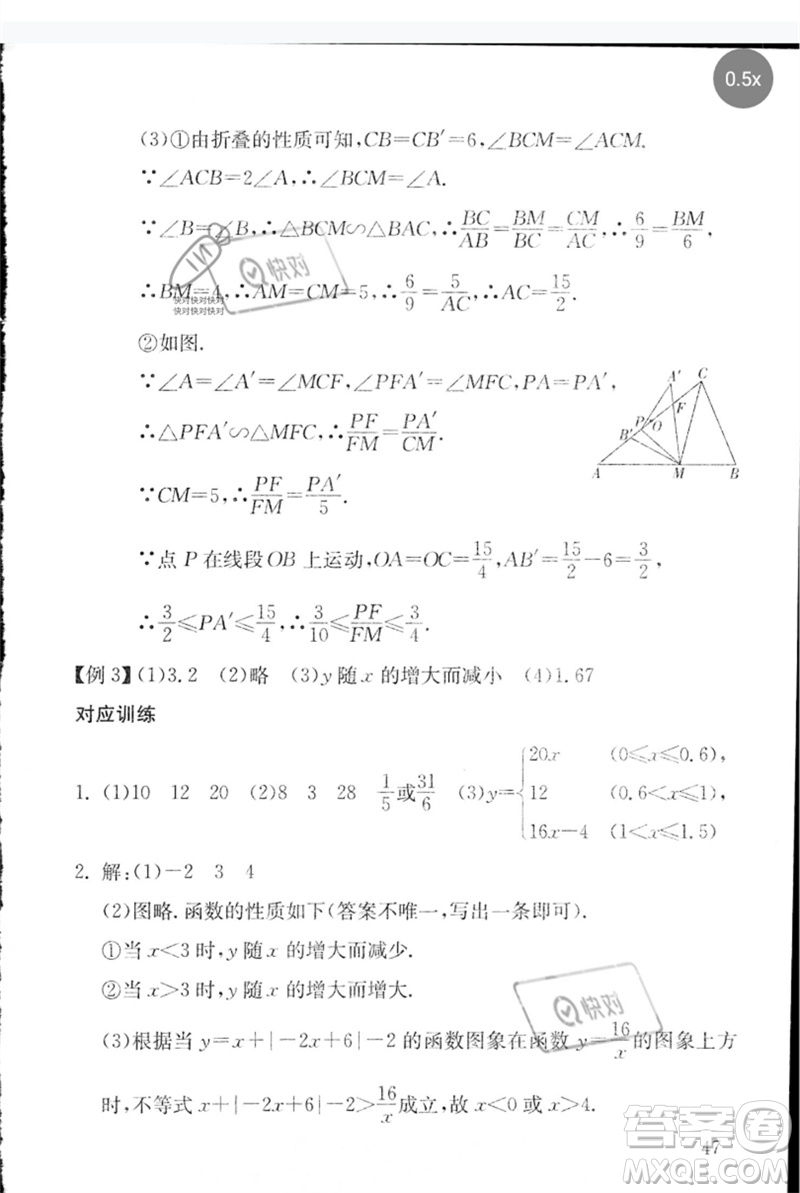 0.5x
(3)①由折叠的性质可知,CB=CB′=6,∠BCM=∠ACM.
∵∠ACB=2∠A,∴∠BCM=∠A.
∵∠B=∠B,∴△BCM∽△BAC,∴BC/AB=BM/BC=CM/AC,∴6/9=BM/6,
∴BM=4,∴AM=CM=5,∴6/9=5/AC,∴AC=15/2.
快对
快对快对快对
快对快对快对
②如图.
∵∠A=∠A′=∠MCF,∠PFA′=∠MFC,PA=PA′,
∴△PFA′∽△MFC,∴PF/FM=PA′/CM.
∵CM=5,∴PF/FM=PA′/5.
A′ C
P O F
B′
A M B
∵点 P 在线段OB 上运动,OA=OC=15/4,AB′=15/2−6=3/2,
∴3/2≤PA′≤15/4,∴3/10≤PF/FM≤3/4.
【例3】(1)3.2 (2)略 (3)y 随 x 的增大而减小 (4)1.67
对应训练
1. (1)10 12 20 (2)8 3 28 1/5或31/6 (3)y={20x (0≤x≤0.6),
12 (0.6<x≤1),
16x−4 (1<x≤1.5)
2. 解:(1)−2 3 4
(2)图略.函数的性质如下(答案不唯一,写出一条即可).
①当 x<3 时,y 随 x 的增大而减少.
②当 x>3 时,y 随 x 的增大而增大.
快对
(3)根据当 y=x+|−2x+6|−2 的函数图象在函数 y=16/x的图象上方
时,不等式 x+|−2x+6|−2>16/x成立,故 x<0 或 x>4.
47
答案卷
MXQE.COM